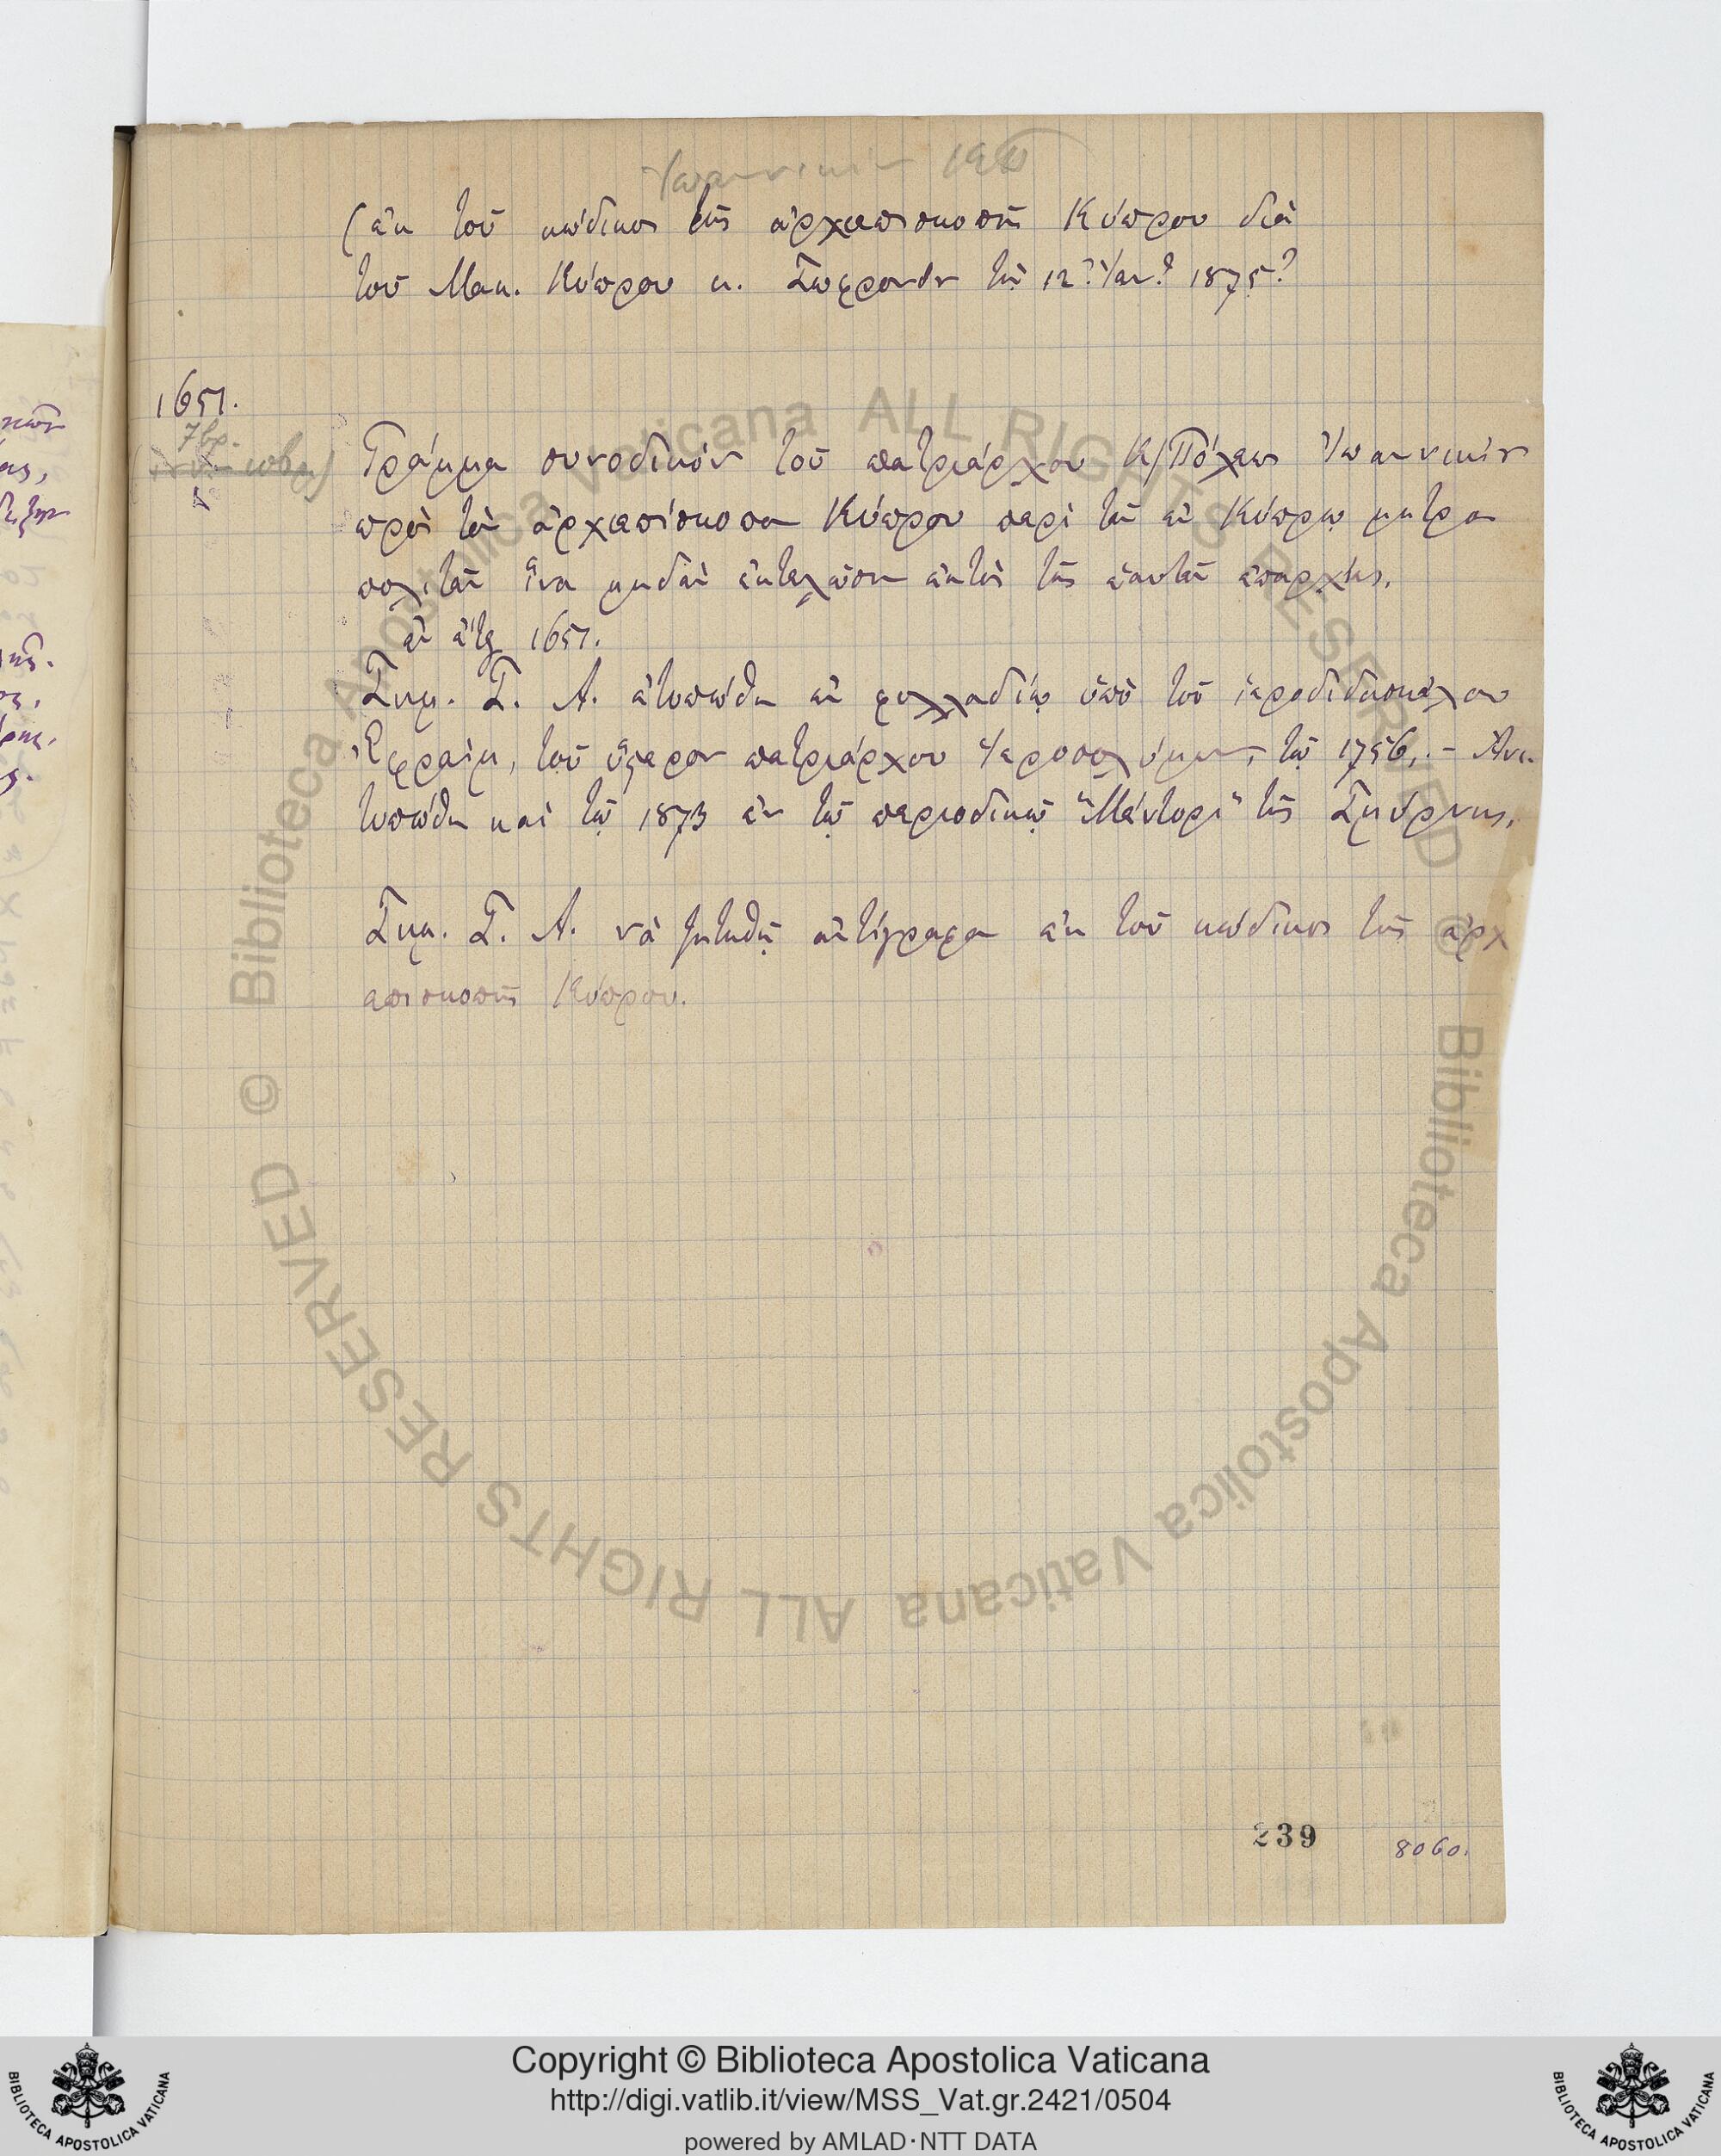 (ἐκ τοῦ κώδικος τῆς ἀρχιεπισκοπῆς Κύπρου διὰ
τοῦ Μακ. Κύπρου κ. Σωφρονίου τῇ 12 Ἰαν. 1875
1651.
7βρ.
Γράμμα συνοδικὸν τοῦ πατριάρχου Κ/Πόλεως Ἰωαννικίου
πρὸς τὸν ἀρχιεπίσκοπον Κύπρου περὶ τῶν ἐν Κύπρῳ μητρο
πολιτῶν ἵνα μηδὲν ἐκτελῶσιν ἐκτὸς τῆς ἑαυτῶν ἐπαρχίας.
ἐν ἔτει 1651.
Σημ. Σ. Α. ἐτυπώθη ἐν φυλλαδίῳ ὑπὸ τοῦ ἱεροδιδασκάλου
Ἐφραὶμ, τοῦ ὕστερον πατριάρχου Ἱεροσολύμων, τῷ 1756. – Ἀνε
τυπώθη καὶ τῷ 1873 ἐν τῷ περιοδικῷ "Μέντορι" τῆς Σμύρνης.
Σημ. Σ. Α. νὰ ζητηθῇ ἀντίγραφον ἐκ τοῦ κώδικος τῆς ἀρχ
επισκοπῆς Κύπρου.
239
8060.
© Biblioteca Apostolica Vaticana ALL RIGHTS RESERVED
© Biblioteca Apostolica Vaticana ALL RIGHTS RESERVED
Copyright © Biblioteca Apostolica Vaticana
http://digi.vatlib.it/view/MSS_Vat.gr.2421/0504
powered by AMLAD·NTT DATA
BIBLIOTECA APOSTOLICA VATICANA
BIBLIOTECA APOSTOLICA VATICANA